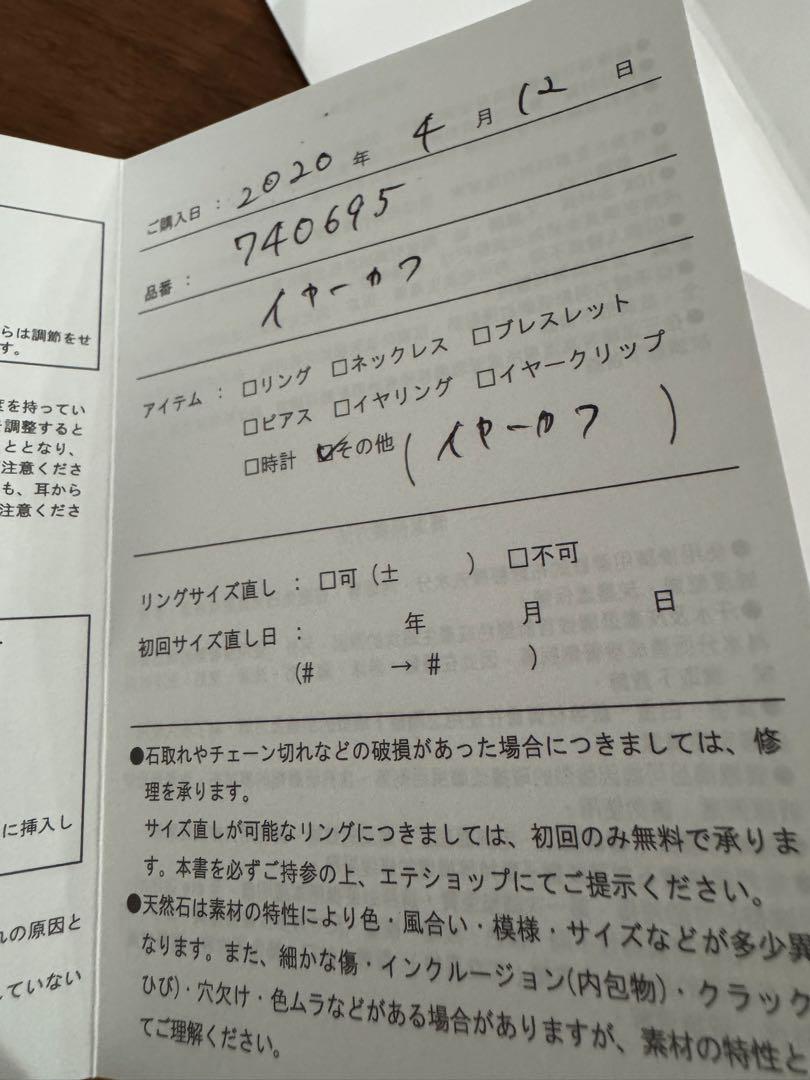 らは調節をせ
す。
を持ってい
調整すると
ととなり、
注意くださ
も、耳から
注意くださ
に挿入し
れの原因と
していない
ご購入日 : 2020 年 4 月 12 日
品番 : 740695
イヤーカフ
アイテム : □リング □ネックレス □ブレスレット
□ピアス □イヤリング □イヤークリップ
□時計 ☑その他 (イヤーカフ)
リングサイズ直し : □可 (± ) □不可
初回サイズ直し日 : 年 月 日
(# → # )
●石取れやチェーン切れなどの破損があった場合につきましては、修
理を承ります。
サイズ直しが可能なリングにつきましては、初回のみ無料で承りま
す。本書を必ずご持参の上、エテショップにてご提示ください。
●天然石は素材の特性により色・風合い・模様・サイズなどが多少異
なります。また、細かな傷・インクルージョン(内包物)・クラック
ひび)・穴欠け・色ムラなどがある場合がありますが、素材の特性と
てご理解ください。